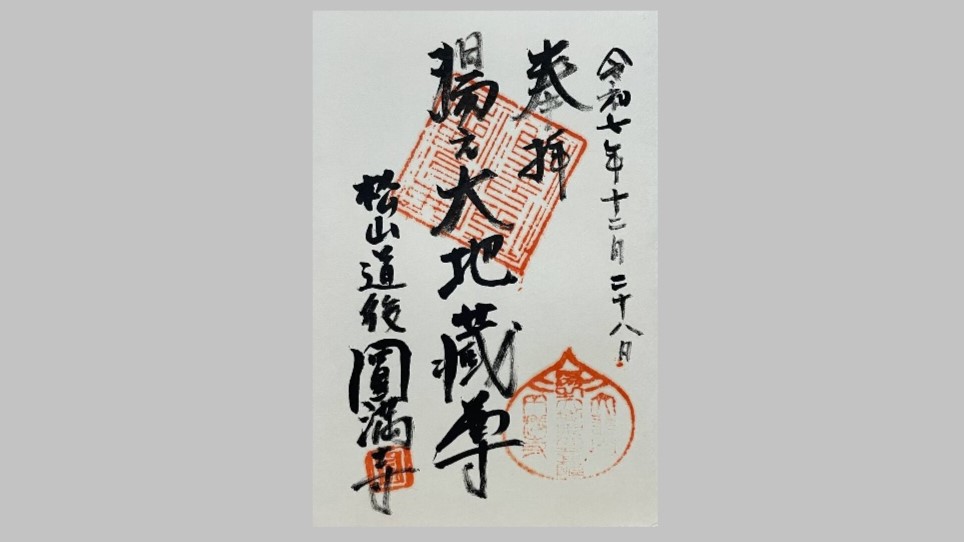 令和七年十二月二十八日
奉拝
湯之大地蔵尊
松山道後
圓満寺